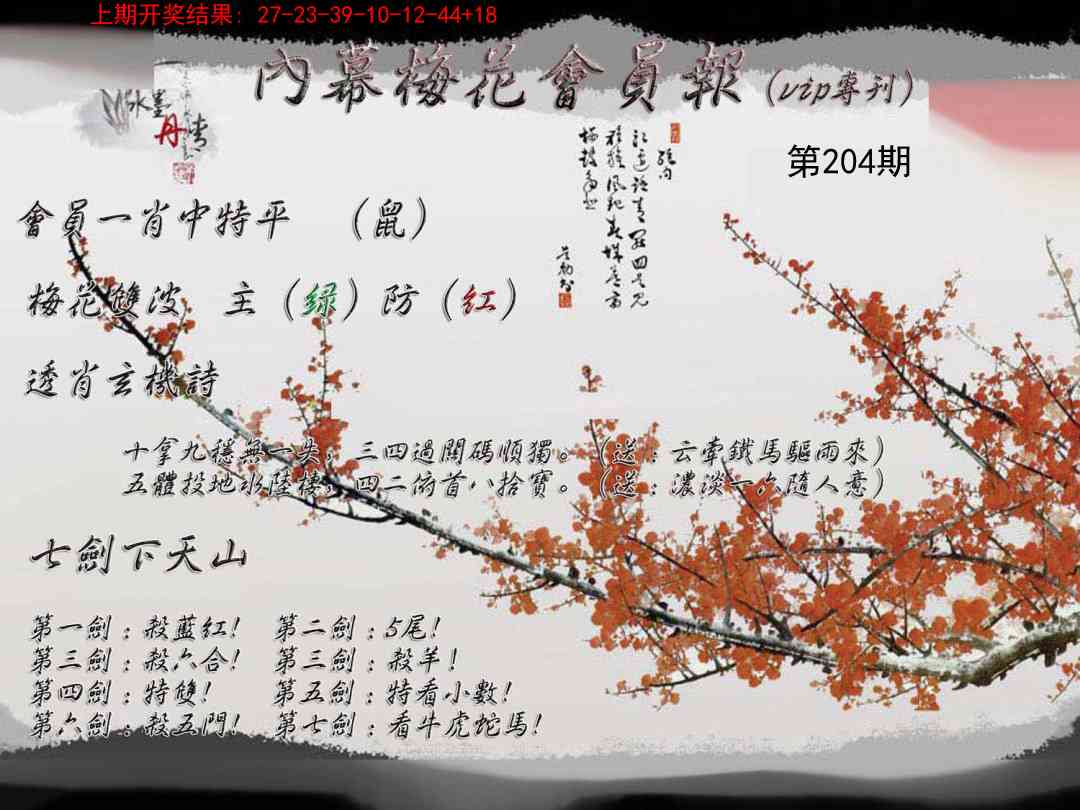 上期开奖结果: 27-23-39-10-12-44+18
內幕梅花會員報（vip專刊）
水墨
丹青
第204期
會員一肖中特平 （鼠）
梅花雙波 主（绿）防（红）
透肖玄機詩
十拿九穩無一失，三四過關碼順獨。（送：云牽鐵馬驅雨來）
五體投地水陸棲，四二俯首八拾寶。（送：濃淡一六隨人意）
七劍下天山
第一劍：殺藍紅！ 第二劍：5尾！
第三劍：殺六合！ 第三劍：殺羊！
第四劍：特雙！ 第五劍：特看小數！
第六劍：殺五門！ 第七劍：看牛虎蛇馬！